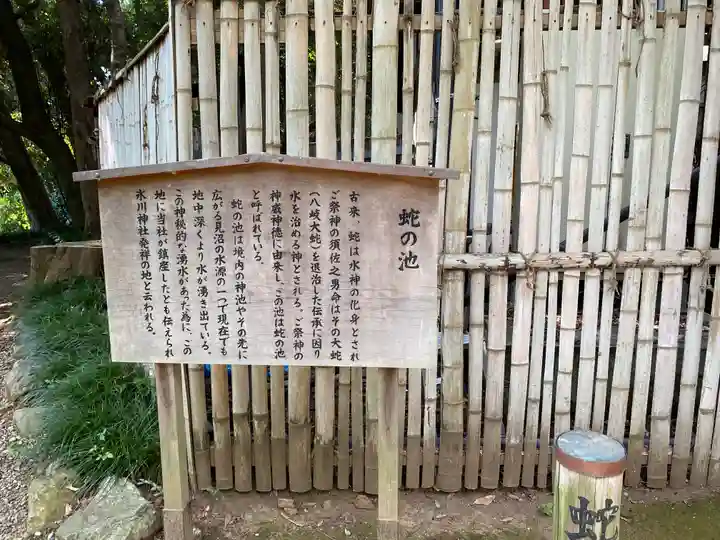 蛇の池
古来、蛇は水神の化身とされ
ご祭神の須佐之男命はその大蛇
(八岐大蛇)を退治した伝承に因り
水を治める神とされる。ご祭神の
神威神徳に由来し、この池は蛇の池
と呼ばれている。
蛇の池は境内の神池やその先に
広がる見沼の水源の一つで現在でも
地中深くより水が湧き出ている。
この神秘的な湧水があった為に、この
地に当社が鎮座したとも伝えられ
氷川神社発祥の地と云われる。
蛇